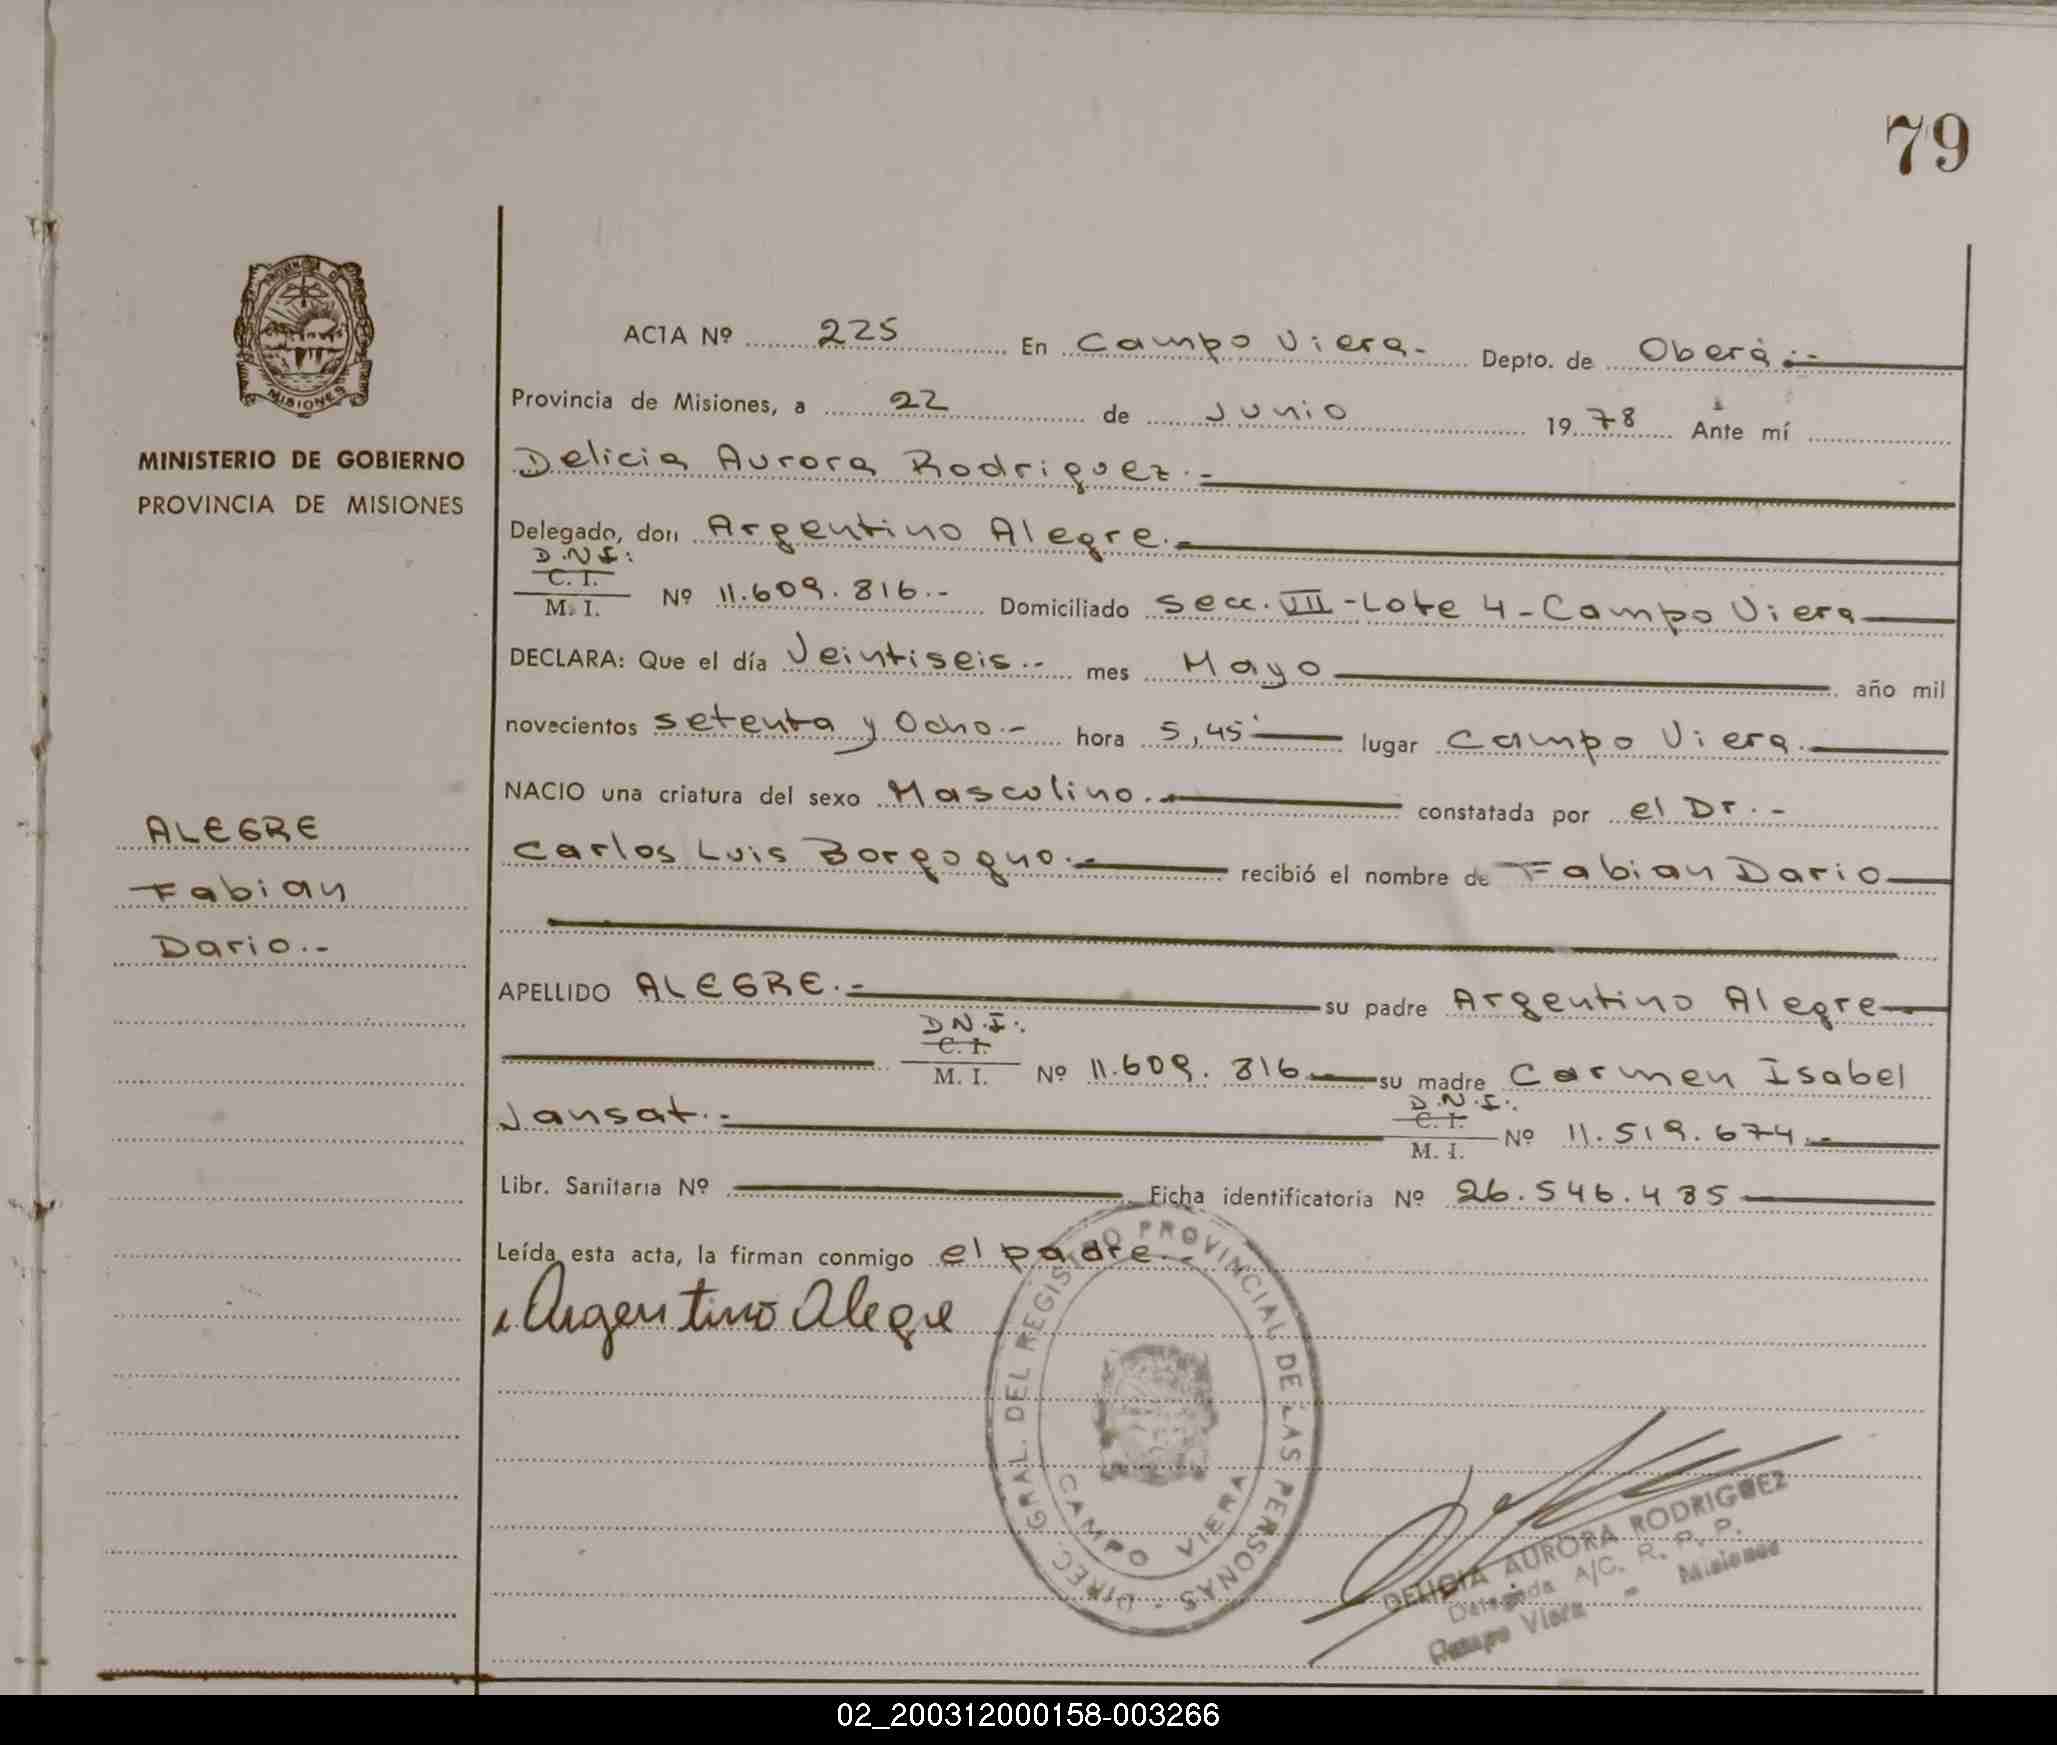 79
PROVINCIA DE
MISIONES
MINISTERIO DE GOBIERNO
PROVINCIA DE MISIONES
ALEGRE
Fabian
Dario.-
ACTA Nº 225 En Campo Viera.- Depto. de Oberá.-
Provincia de Misiones, a 22 de Junio 1978 Ante mí
Delicia Aurora Rodriguez.-
Delegado, don Argentino Alegre.-
D.N.I:
C. I.
M. I. Nº 11.609.816.- Domiciliado Secc. VII - Lote 4 - Campo Viera
DECLARA: Que el día Veintiseis.- mes Mayo año mil
novecientos setenta y Ocho.- hora 5,45' lugar Campo Viera.
NACIO una criatura del sexo Masculino.- constatada por el Dr.-
Carlos Luis Borgogno.- recibió el nombre de Fabian Dario
APELLIDO ALEGRE.- su padre Argentino Alegre
D.N.I:
C. I.
M. I. Nº 11.609.816 su madre Carmen Isabel
Jansat.-
D.N.I:
C. I.
M. I. Nº 11.519.674.-
Libr. Sanitaria Nº Ficha identificatoria Nº 26.546.485
Leída esta acta, la firman conmigo el padre.-
Argentino Alegre
DIREC. GRAL. DEL REGISTRO PROVINCIAL DE LAS PERSONAS -
CAMPO VIERA
DELICIA AURORA RODRIGUEZ
Delegada A/C. R. P. P.
Campo Viera - Misiones
02_200312000158-003266